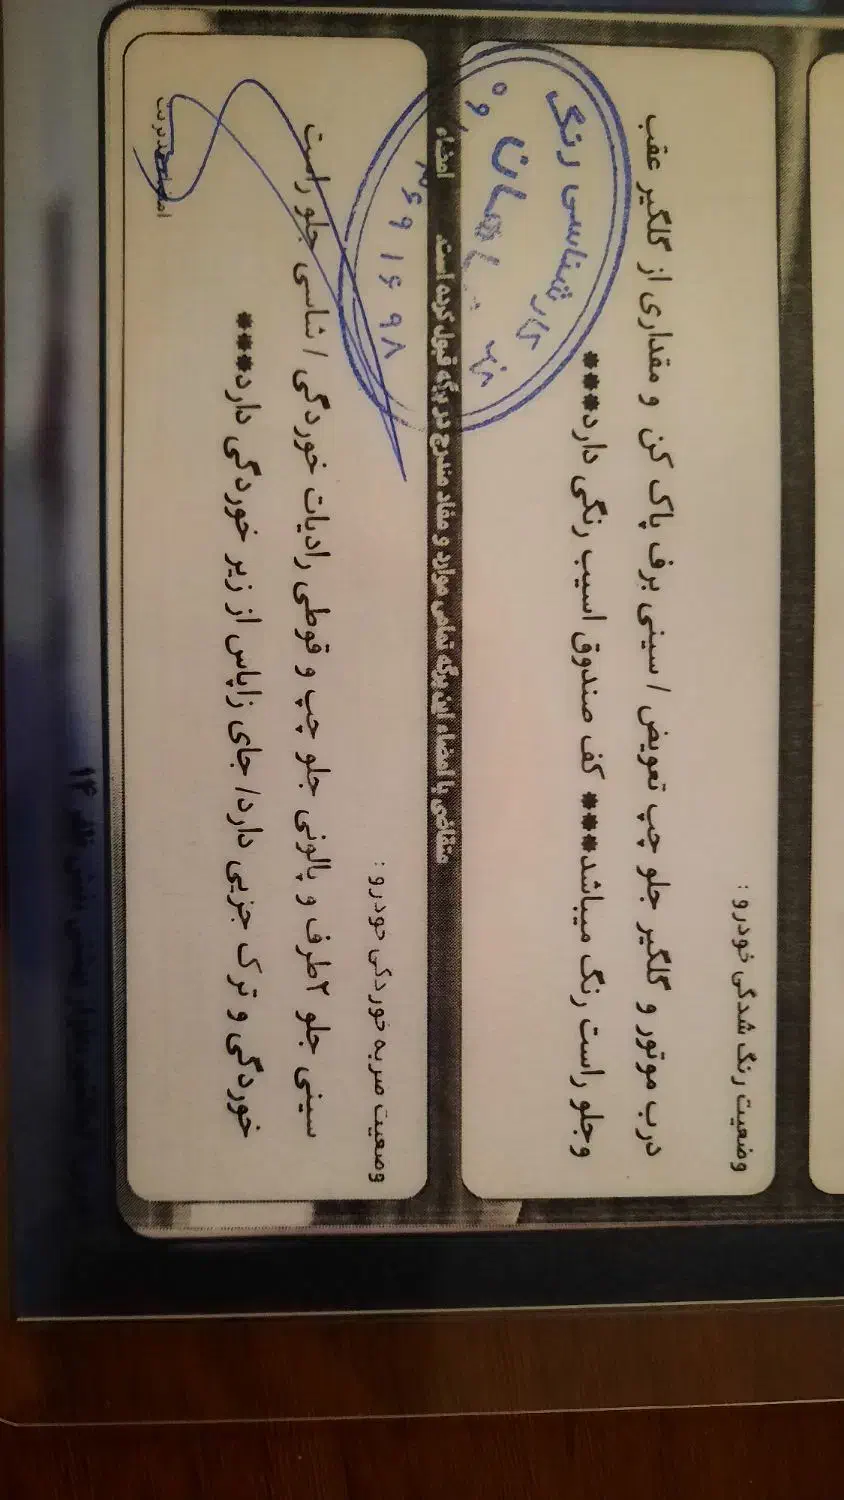 وضعیت رنگ شدگی خودرو :
درب موتور و گلگیر جلو چپ تعویض / سینی برف پاک کن و مقداری از گلگیر عقب
وجلو راست رنگ میباشد*** کف صندوق اسیب رنگی دارد***
کارشناسی رنگ
متقاضی با امضاء این برگه تمامی موارد و مفاد مندرج در برگه قبول کرده است. امضاء
وضعیت ضربه خوردگی خودرو :
سینی جلو ۲طرف و پالونی جلو چپ و قوطی رادیات خوردگی / شاسی جلو راست
خوردگی و ترک جزیی دارد/ جای زاپاس از زیر خوردگی دارد***